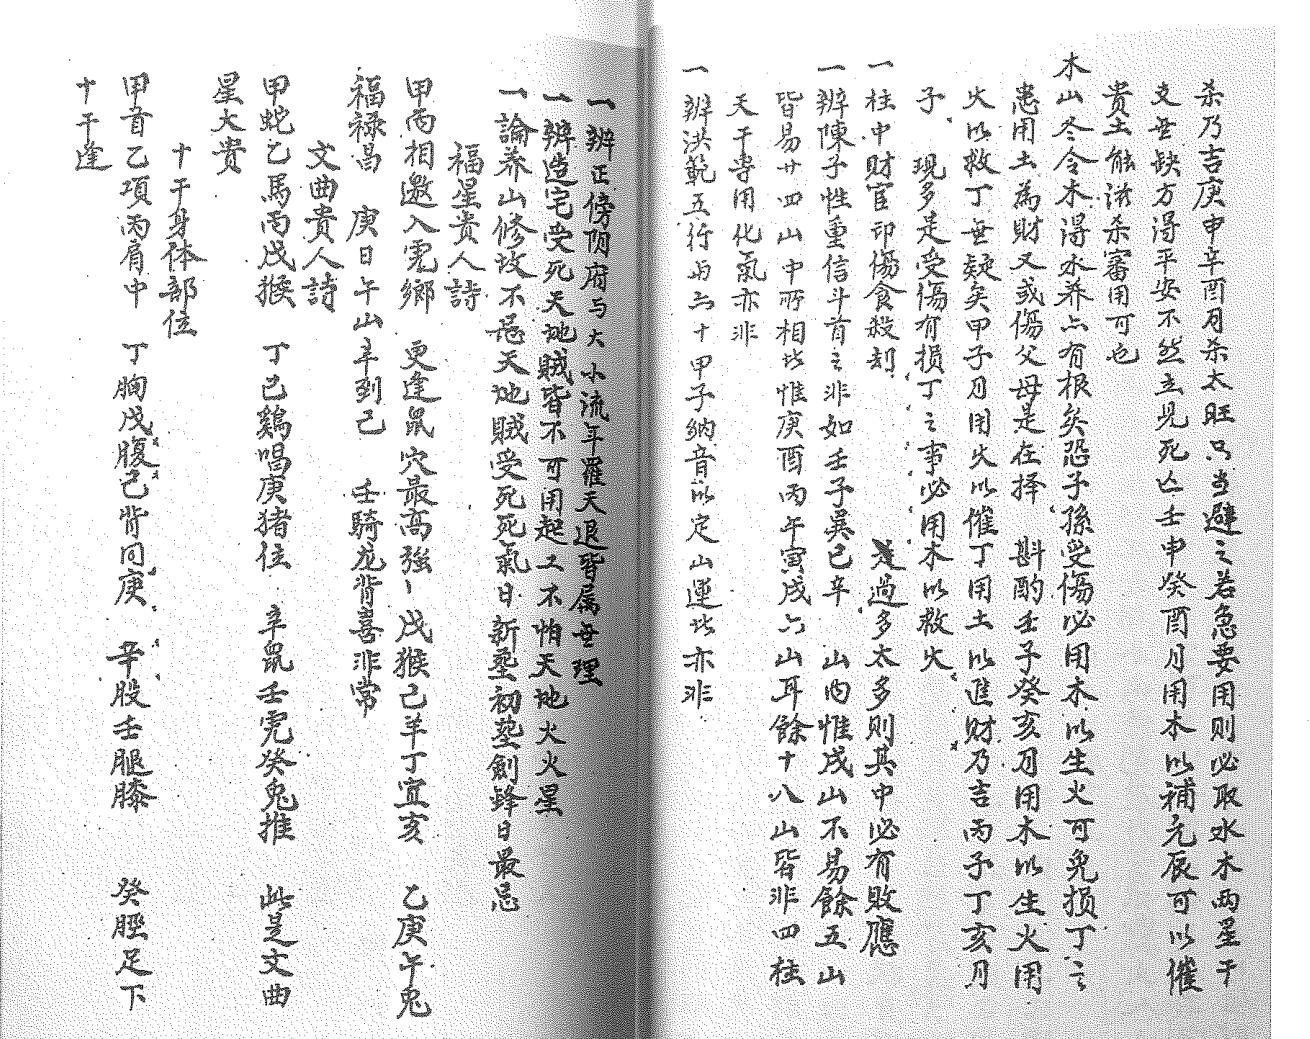 杀乃吉庚申辛酉月杀太旺只当避之若急要用則必取水木两星干
支無缺方得平安不然立見死亡壬申癸酉月用木以補元辰可以催
贵土能滋杀審用可也
木山冬令木得水养亦有根矣恐子孫受傷必用木以生火可免損丁之
患用土為財又或傷父母是在择斟酌壬子癸亥月用木以生火用
火以救丁無疑矣甲子月用火以催丁用土以進财乃吉丙子丁亥月
子現多是受傷有損丁之事必用木以救火
一柱中财官印傷食殺刦是過多太多則其中必有敗應
一辨陳子性重信斗首之非如壬子巽巳辛山内惟戌山不易餘五山
皆易廿四山中所相比惟庚酉丙午寅戌六山耳餘十八山皆非四柱
天干専用化氣亦非
一辨洪範五行与六十甲子纳音以定山運比亦非
一辨正傍阴府与大小流年羅天退皆属無理
一辨造宅受死天地賊皆不可用起工不怕天地火火星
一論养山修坟不忌天地賊受死死氣日新塟初塟劍鋒日最忌
福星贵人詩
甲丙相邀入虎鄉更逢鼠穴最高強戊猴己羊丁宜亥乙庚午兎
福禄昌庚日午山辛到己壬騎龙背喜非常
文曲貴人詩
甲蛇乙馬丙戊猴丁己鷄唱庚猪位辛鼠壬虎癸兎推此是文曲
星大貴
十干身体部位
甲首乙項丙肩中丁胸戊腹己背同庚辛股壬腿膝癸脛足下
十干逢